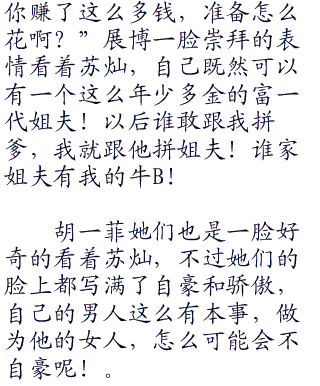 你赚了这么多钱，准备怎么
花啊？”展博一脸崇拜的表
情看着苏灿，自己既然可以
有一个这么年少多金的富一
代姐夫！以后谁敢跟我拼
爹，我就跟他拼姐夫！谁家
姐夫有我的牛B！
胡一菲她们也是一脸好
奇的看着苏灿，不过她们的
脸上都写满了自豪和骄傲，
自己的男人这么有本事，做
为他的女人，怎么可能会不
自豪呢！。